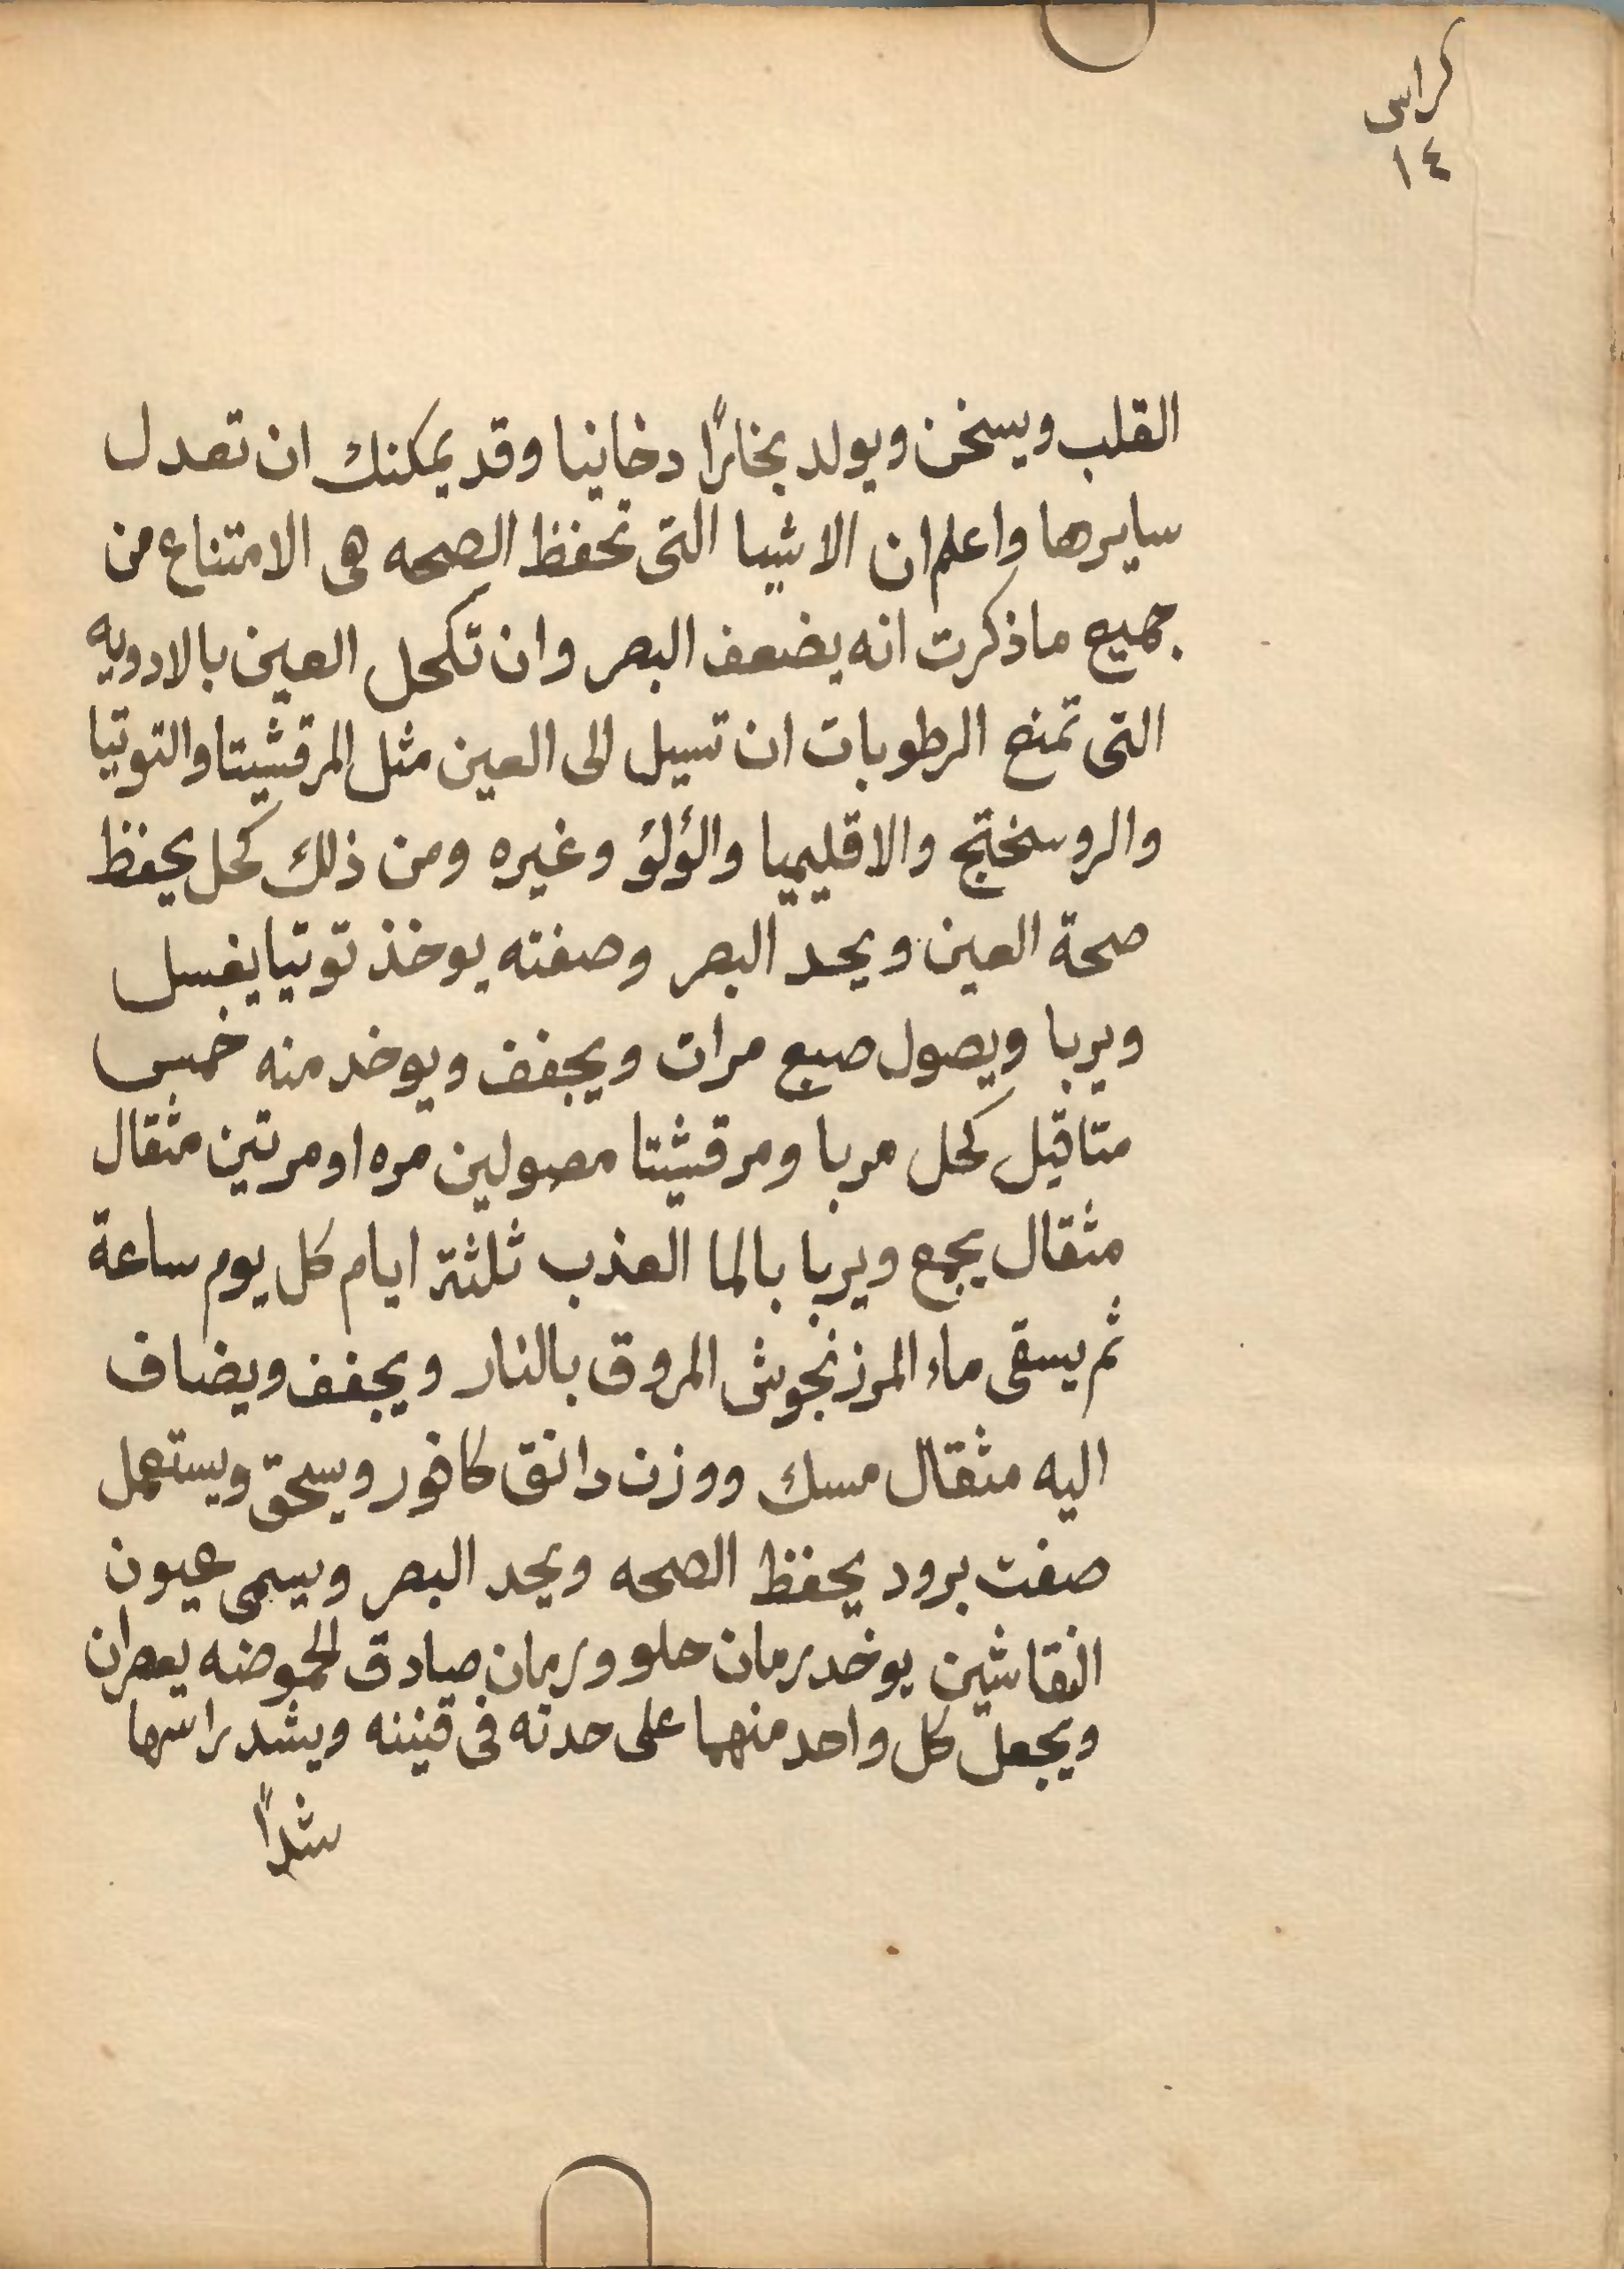 كراس
١٤
القلب ويسخن ويولد بخارًا دخانيا وقد يمكنك ان تعدل
سايرها واعلم ان الاشيا التى تحفظ الصحه هى الامتناع من
جميع ما ذكرت انه يضعف البصر وان تكحل العين بالادويه
التى تمنع الرطوبات ان تسيل الى العين مثل المرقشيتا والتوتيا
والروسختج والاقليميا والؤلؤ وغيره ومن ذلك كحل يحفظ
صحة العين ويحد البصر وصفته يوخذ توتيا يغسل
ويربا ويصول صبع مرات ويجفف ويوخد منه خمس
متاقيل كحل مربا ومرقشيتا مصولين مره او مرتين مثقال
مثقال يجمع ويربا بالما العذب ثلثة ايام كل يوم ساعة
ثم يسقى ماء المرزنجوش المروق بالنار ويجفف ويضاف
اليه مثقال مسك ووزن دانق كافور ويسحق ويستعمل
صفت برود يحفظ الصحه ويحد البصر ويسمى عيون
النقاشين يوخد رمان حلو ورمان صادق الحموضه يعصران
ويجعل كل واحد منهما على حدته فى قيننه ويشد راسها
شدًا